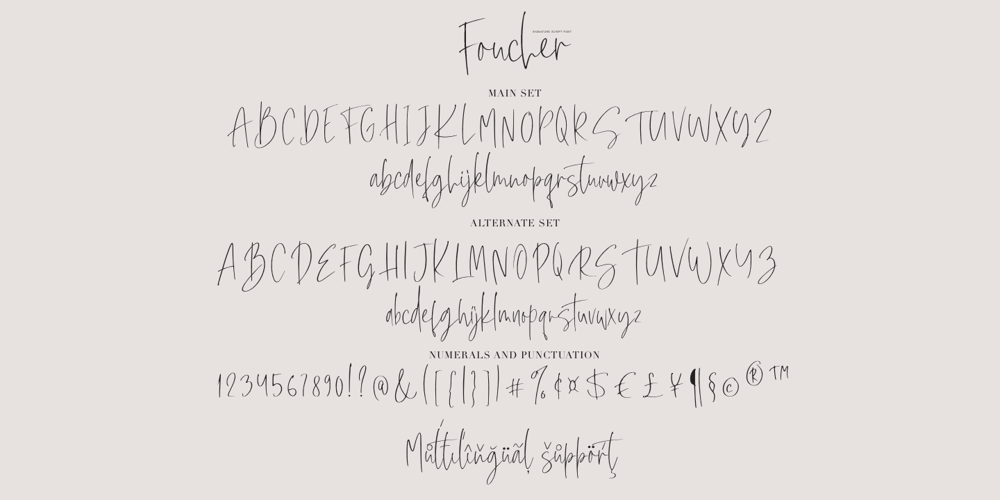 Foucher
SIGNATURE SCRIPT FONT
MAIN SET
ABCDEFGHIJKLMNOPQRSTUVWXYZ
abcdefghijklmnopqrstuvwxyz
ALTERNATE SET
ABCDEFGHIJKLMNOPQRSTUVWXYZ
abcdefghijklmnopqrstuvwxyz
NUMERALS AND PUNCTUATION
1234567890!?@&([{|}])#%¢¤$€£¥¶§©®™